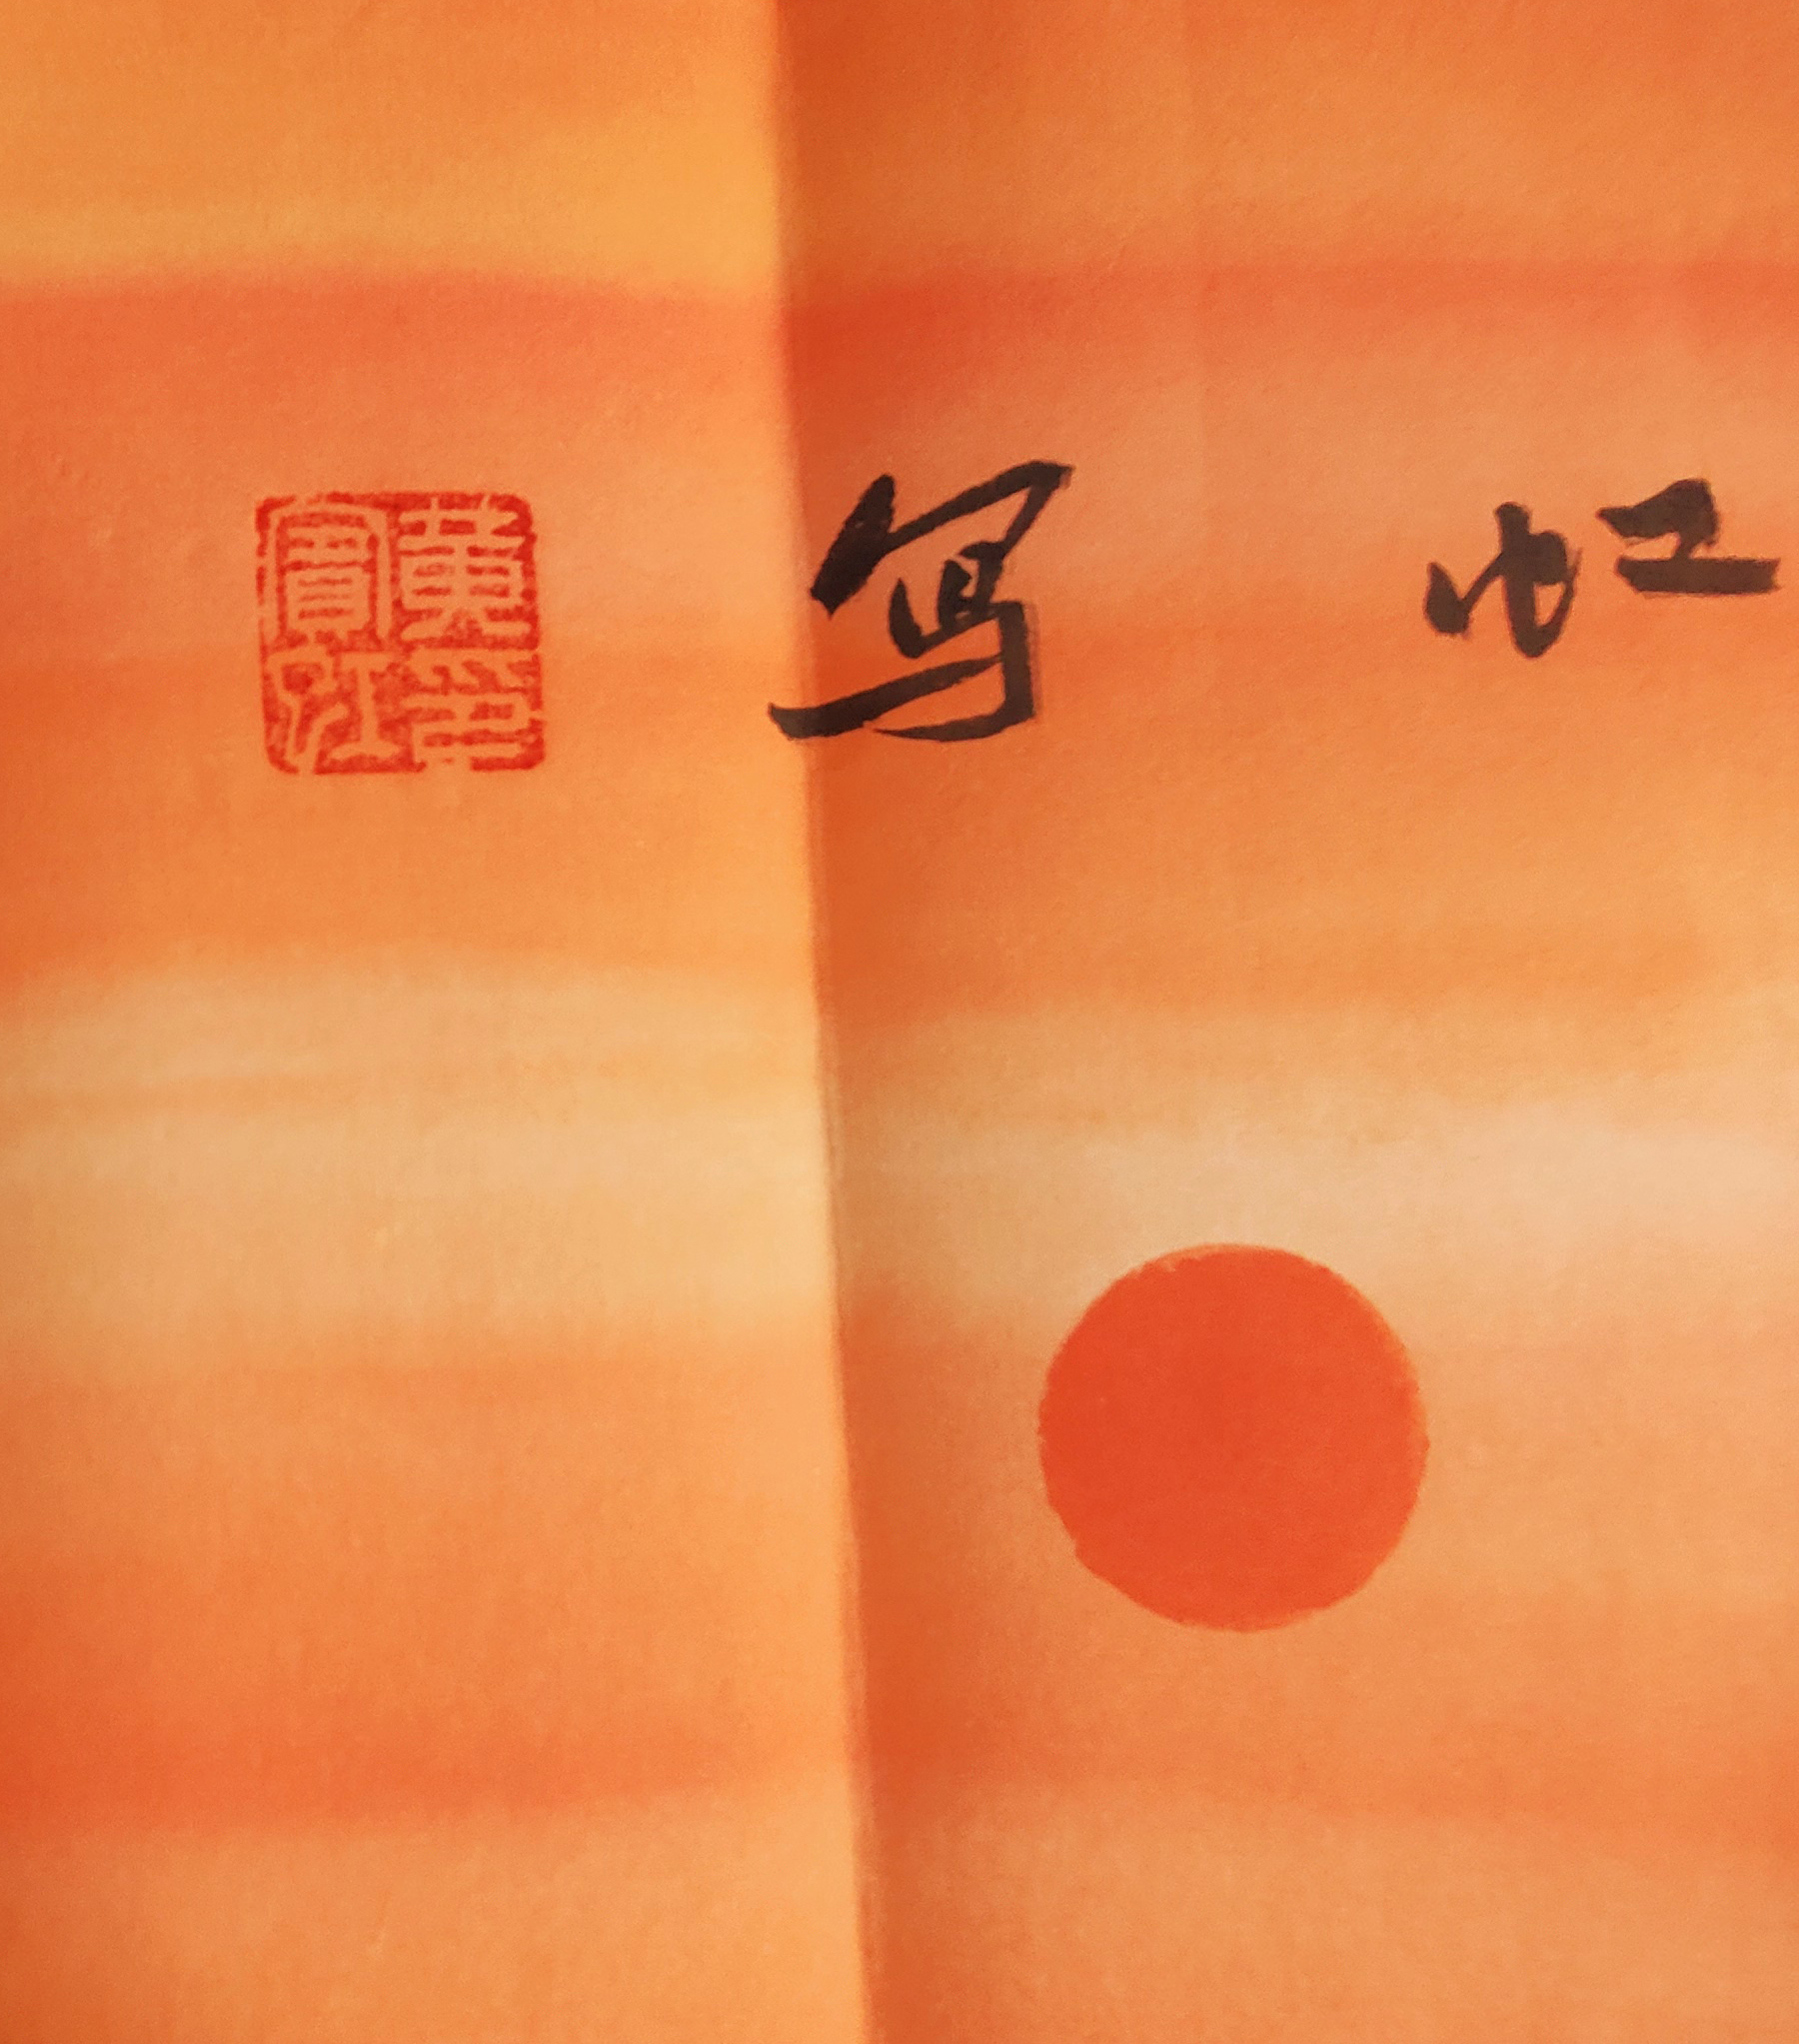 虹写
黄印
賓虹